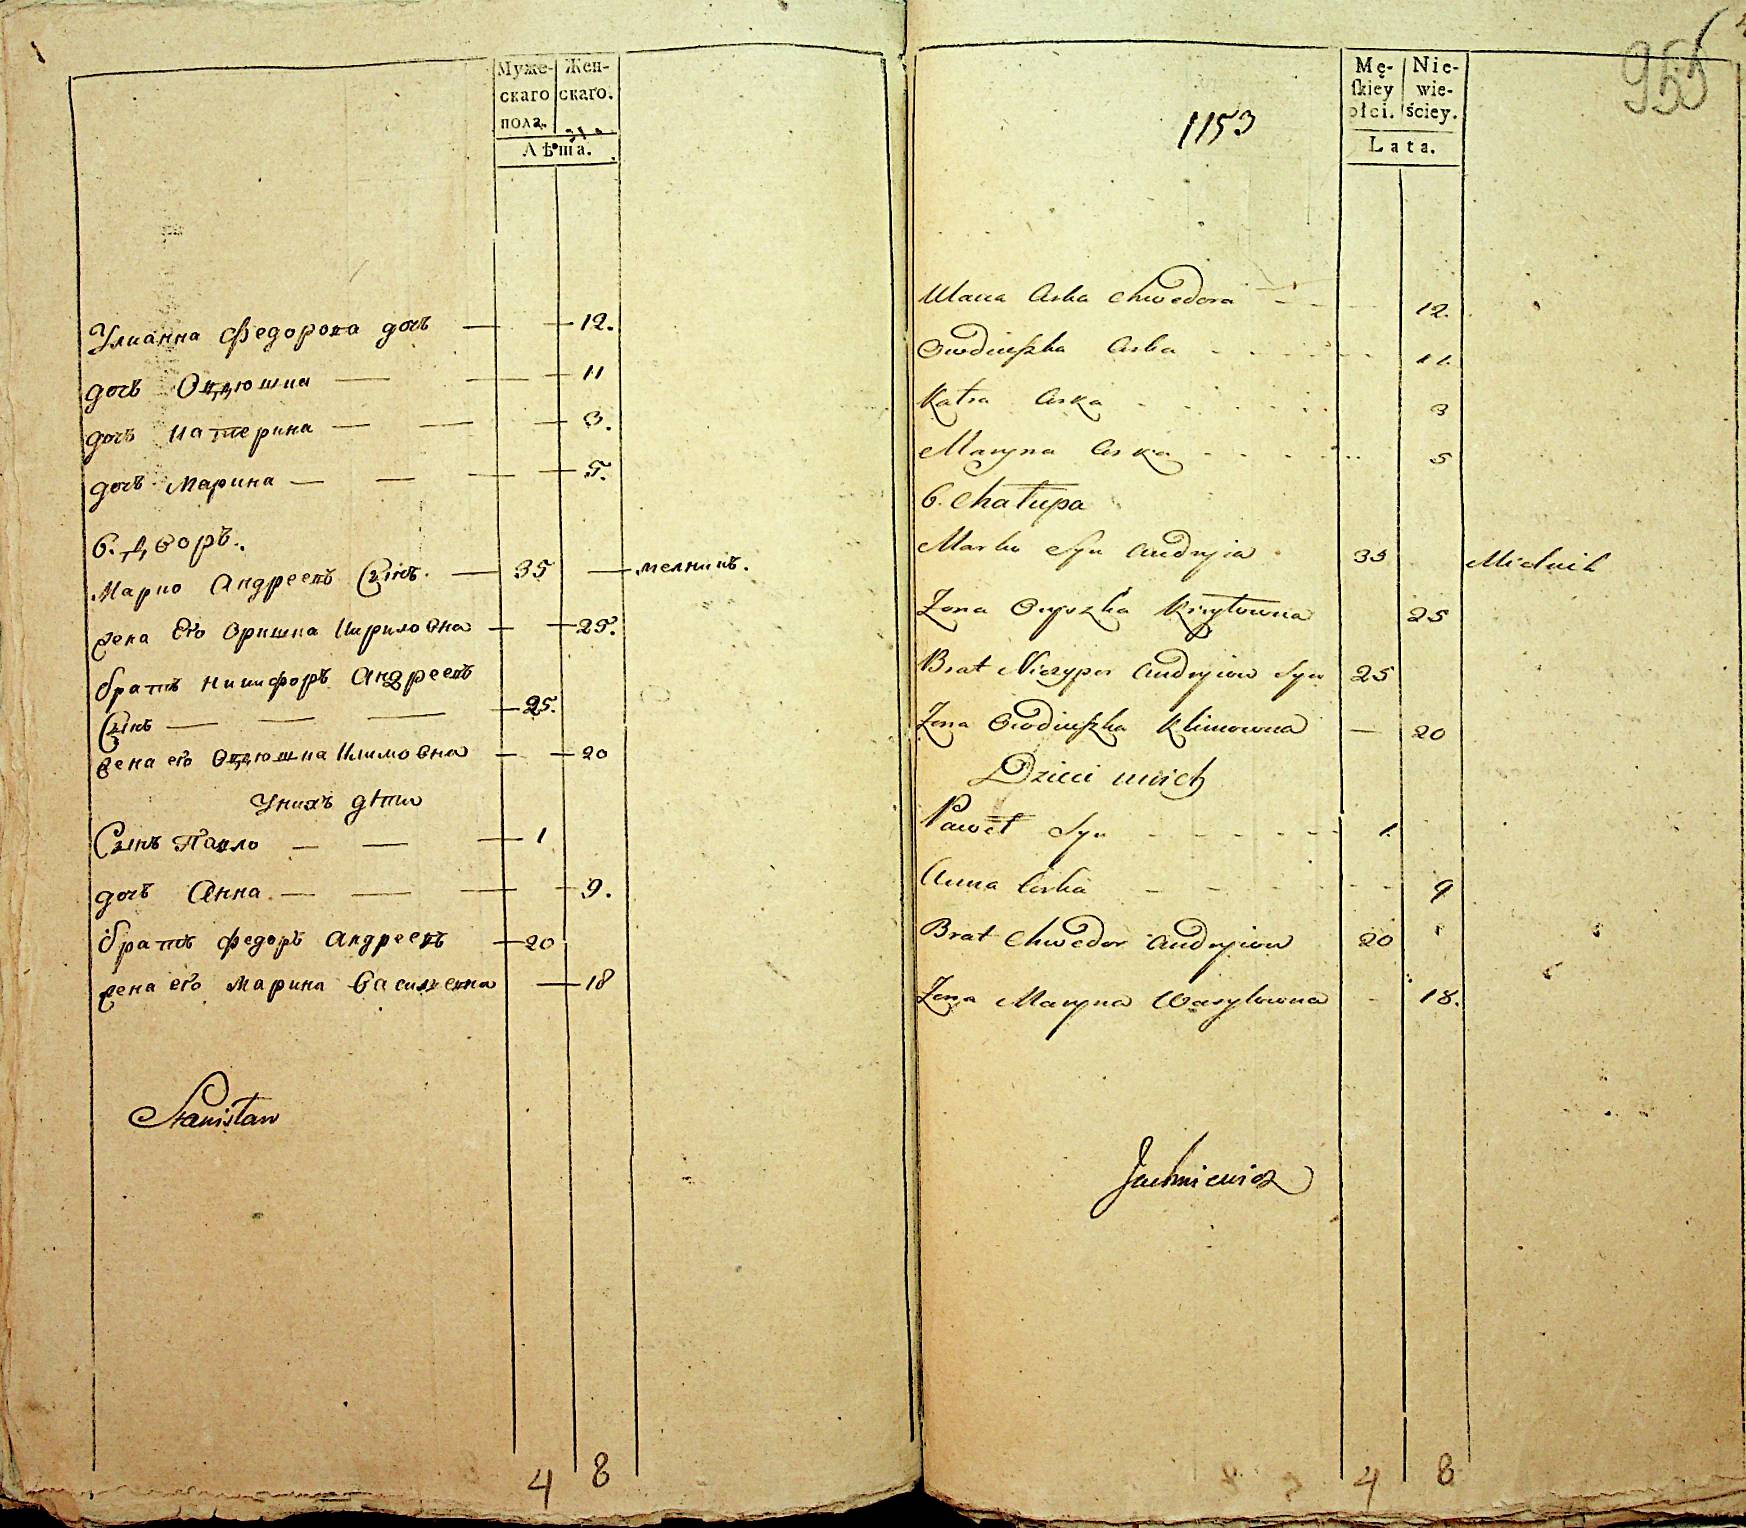 Муже- Жен-
скаго скаго.
пола.
Лѣта.
Улианна Федорова дочъ — 12.
дочъ Овдюшка — — 11
дочъ Катерина — — 3.
дочъ Марина — — 5.
6. дворъ.
Марко Андреевъ Сынъ. — 35 — мелникъ.
жена Его Оришка Кириловна — 25.
братъ Никифоръ Андреевъ
Сынъ — — — 25.
жена его Овдюшка Климовна — 20
Унихъ дѣти
Сынъ Павло — — 1
дочъ Анна — — 9.
братъ Федоръ Андреевъ — 20
жена его Марина Василевна — 18
Stanisław
4 8
955
1153
Mę- Nie-
skiey wie-
płci. ściey.
Lata.
Ulana Curka Chwedora 12.
Owdiuszka Curka 11.
Katra Curka 3
Maryna Curka 5
6. Chałupa
Marko Syn Andryia 35 Mielnik
Zona Oryszka Kiryłowna 25
Brat Niczypor Andryiow Syn 25
Zona Owdiuszka Klimowna — 20
Dzieci unich
Paweł Syn 1.
Anna Curka 9
Brat Chwedor Andryiow 20
Zona Maryna Wasylowna 18.
Juchniewicz
4 8